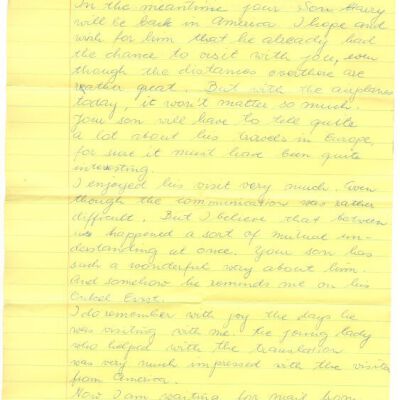 In the meantime your Son Harry
will be back in America. I hope and
wish for him that he already had
the chance to visit with you, even
though the distances over there are
rather great. But with the airplanes
today, it won't matter so much.
Your son will have to tell quite
a lot about his travels in Europe,
for sure it must have been quite
interesting.
I enjoyed his visit very much. Even
though the communication was rather
difficult. But I believe that between
us happened a sort of mutual un-
derstanding at once. Your son has
such a wonderful way about him.
And somehow he reminds me on his
Onkel Ernst.
I do remember with joy the days he
was visiting with me. The young lady
who helped with the translation
was very much impressed with the visitor
from America.
Now I am waiting for mail from